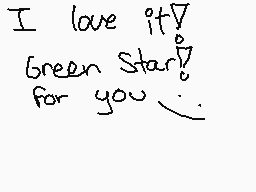 I love it!
Green Star!
for you